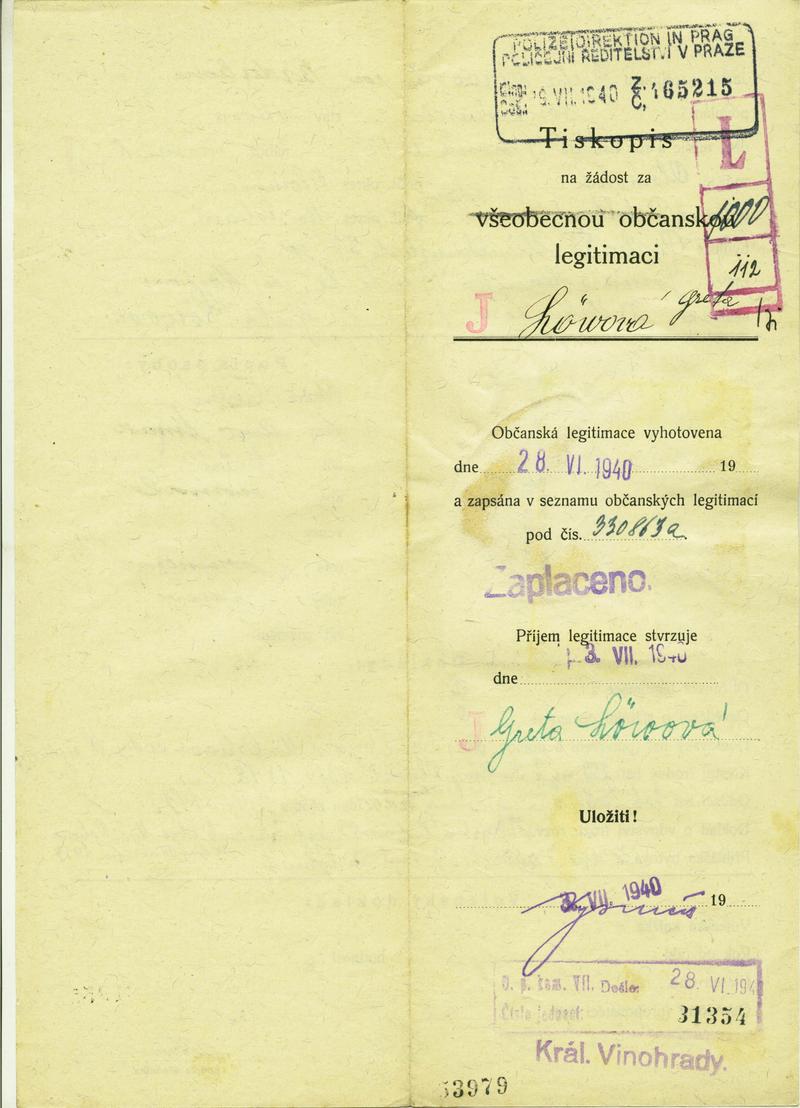 POLIZEIDIREKTION IN PRAG
POLICEJNÍ ŘEDITELSTVÍ V PRAZE
VII. 1940 Z, Č, 165215
Tiskopis
L
na žádost za
1000
všeobecnou občanskou
legitimaci
112
J Löwová Greta
Občanská legitimace vyhotovena
dne 28. VI. 1940 19
a zapsána v seznamu občanských legitimací
pod čís. 330863a
Zaplaceno.
Příjem legitimace stvrzuje
3. VII. 1940
dne
J Greta Löwová
Uložiti!
VII. 1940 19
O. p. kom. VII. Došlo: 28. VI. 194
Číslo jednací: 31354
Král. Vinohrady.
3979